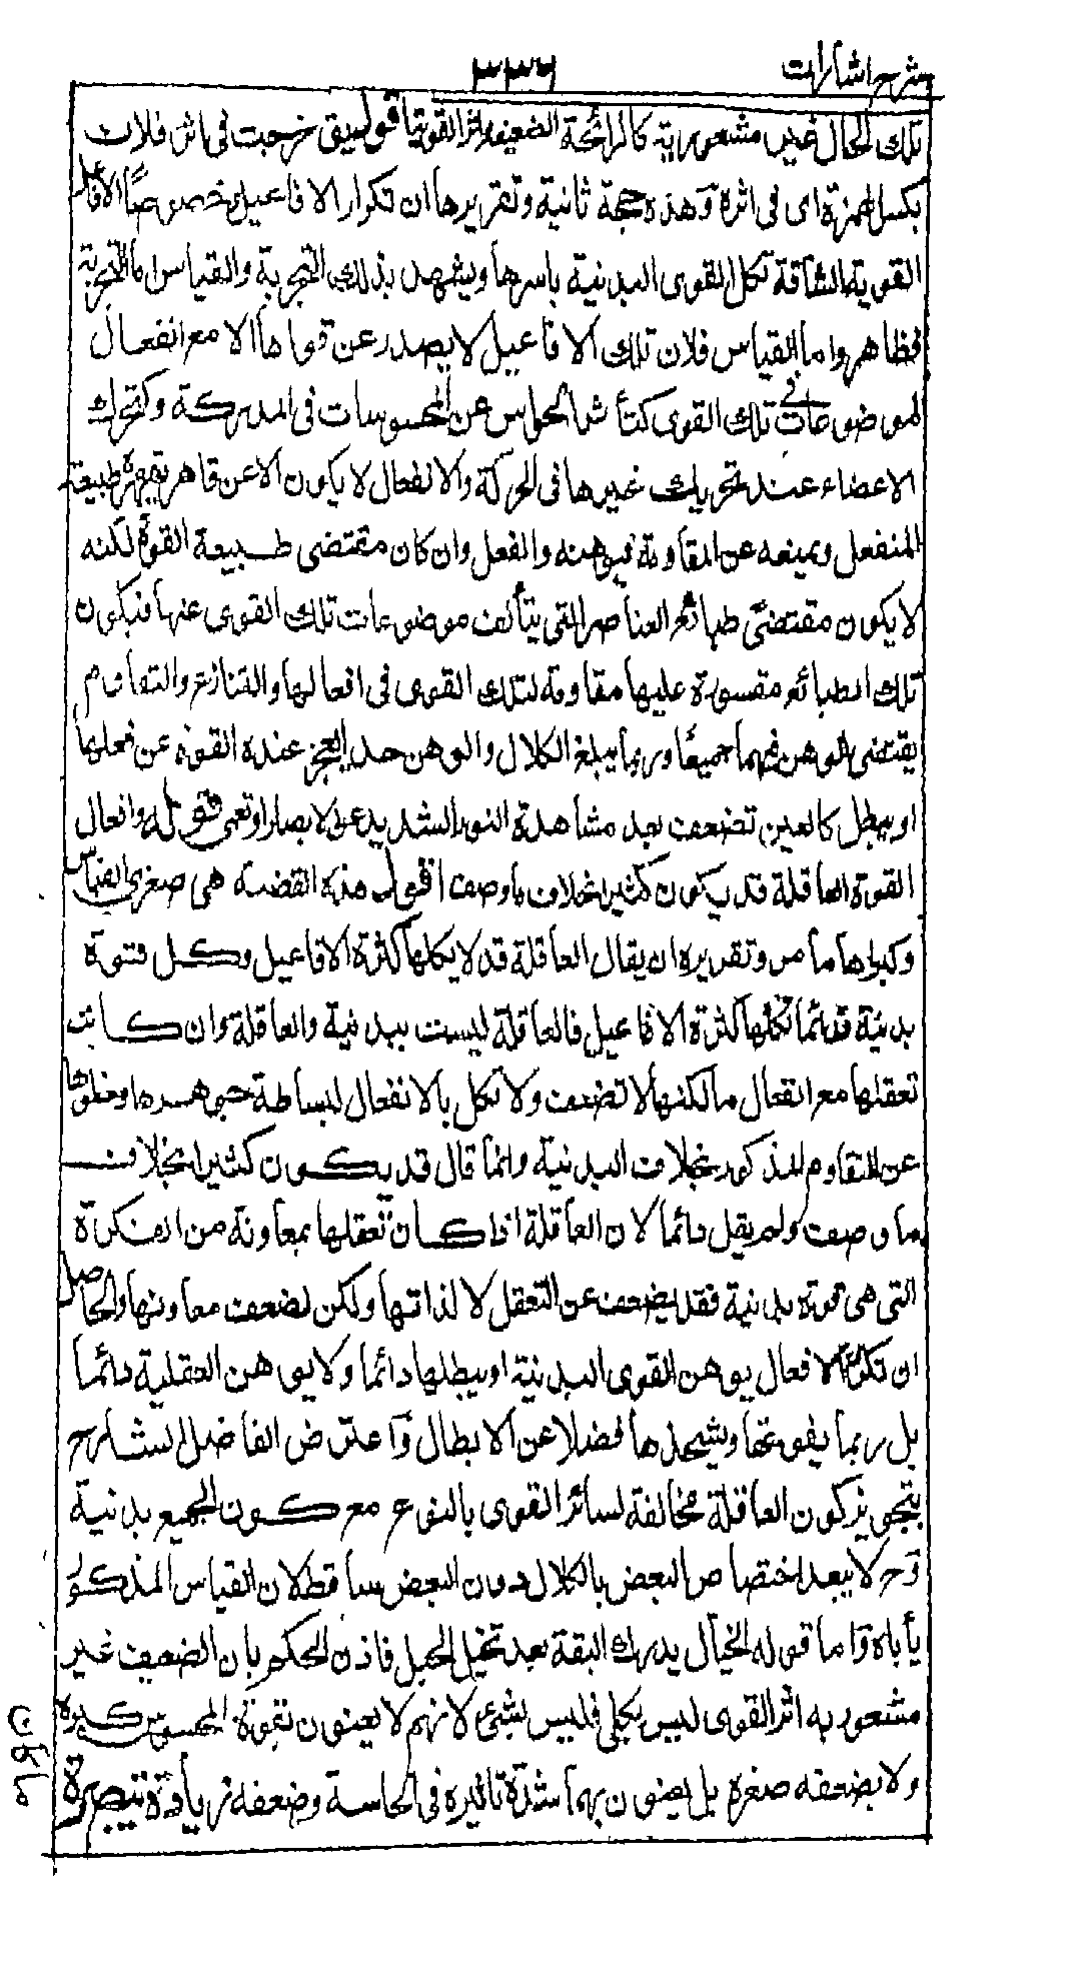 شرح اشارات
٣٣٦
تلك الحال غير مشعور به كالرائحة الضعيفة اثر القوية اقول يقال خرجت في اثر فلان
بكسر الهمزة اى في اثره وهذه حجة ثانية وتقريرها ان تكرار الافاعيل خصوصًا الافاعيل
القوية الشاقة تكل القوى البدنية باسرها ويشهد بذلك التجربة والقياس اما التجربة
فظاهر واما القياس فلان تلك الافاعيل لا يصدر عن قواها الا مع انفعال
لموضوعات تلك القوى كتأثر الحواس عن المحسوسات في المدركة وكتحرك
الاعضاء عند تحريك غيرها في الحركة والانفعال لا يكون الا عن قاهر يقهر طبيعة
المنفعل ويمنعه عن المقاومة فيوهنه والفعل وان كان مقتضى طبيعة القوة لكنه
لا يكون مقتضى طبائع العناصر التي يتألف موضوعات تلك القوى عنها فيكون
تلك الطبائع مقسورة عليها مقاومة لتلك القوى في افعالها والتنازع والتقاوم
يقتضى الوهن فيهما جميعًا وربما يبلغ الكلال والوهن حدا يعجز عنده القوة عن فعلها
او يبطل كالعين تضعف بعد مشاهدة النور الشديد عن الابصار او تعمى قوله وافعال
القوة العاقلة قد يكون كثيرا بخلاف ما وصف اقول هذه القضية هى صغرى القياس
وكبراها ما مر وتقريره ان يقال العاقلة قد لا يكلها كثرة الافاعيل وكل قوة
بدنية فدائما تكلها كثرة الافاعيل فالعاقلة ليست ببدنية والعاقلة وان كانت
تعقلها مع انفعال ما لكنها لا تضعف ولا تكل بالانفعال لبساطة جوهرها وخلوها
عن التقاوم المذكور بخلاف البدنية وانما قال قد يكون كثيرا بخلاف
ما وصف ولم يقل دائما لان العاقلة اذا كان تعقلها بمعاونة من الفكرة
التى هى قوة بدنية فقد يضعف عن التعقل لا لذاتها ولكن لضعف معاونها والحاصل
ان تكرّر الافعال يوهن القوى البدنية او يبطلها دائما ولا يوهن العقلية دائما
بل ربما يقويها ويشحذها فضلا عن الابطال واعتراض الفاضل الشارح
بتجويز كون العاقلة مخالفة لسائر القوى بالنوع مع كون الجميع بدنية
وح لا يبعد اختصاص البعض بالكلال دون البعض ساقط لان القياس المذكور
يأباه واما قوله الخيال يدرك البقة بعد تخيل الجبل فاذن الحكم بان الضعيف غير
مشعور به اثر القوى ليس بكلى فليس بشئ لانهم لا يعنون بقوة المحسوس كبره
ولا بضعفه صغره بل يعنون بهما شدة تاثيره في الحاسة وضعفه زيادة تبصرة